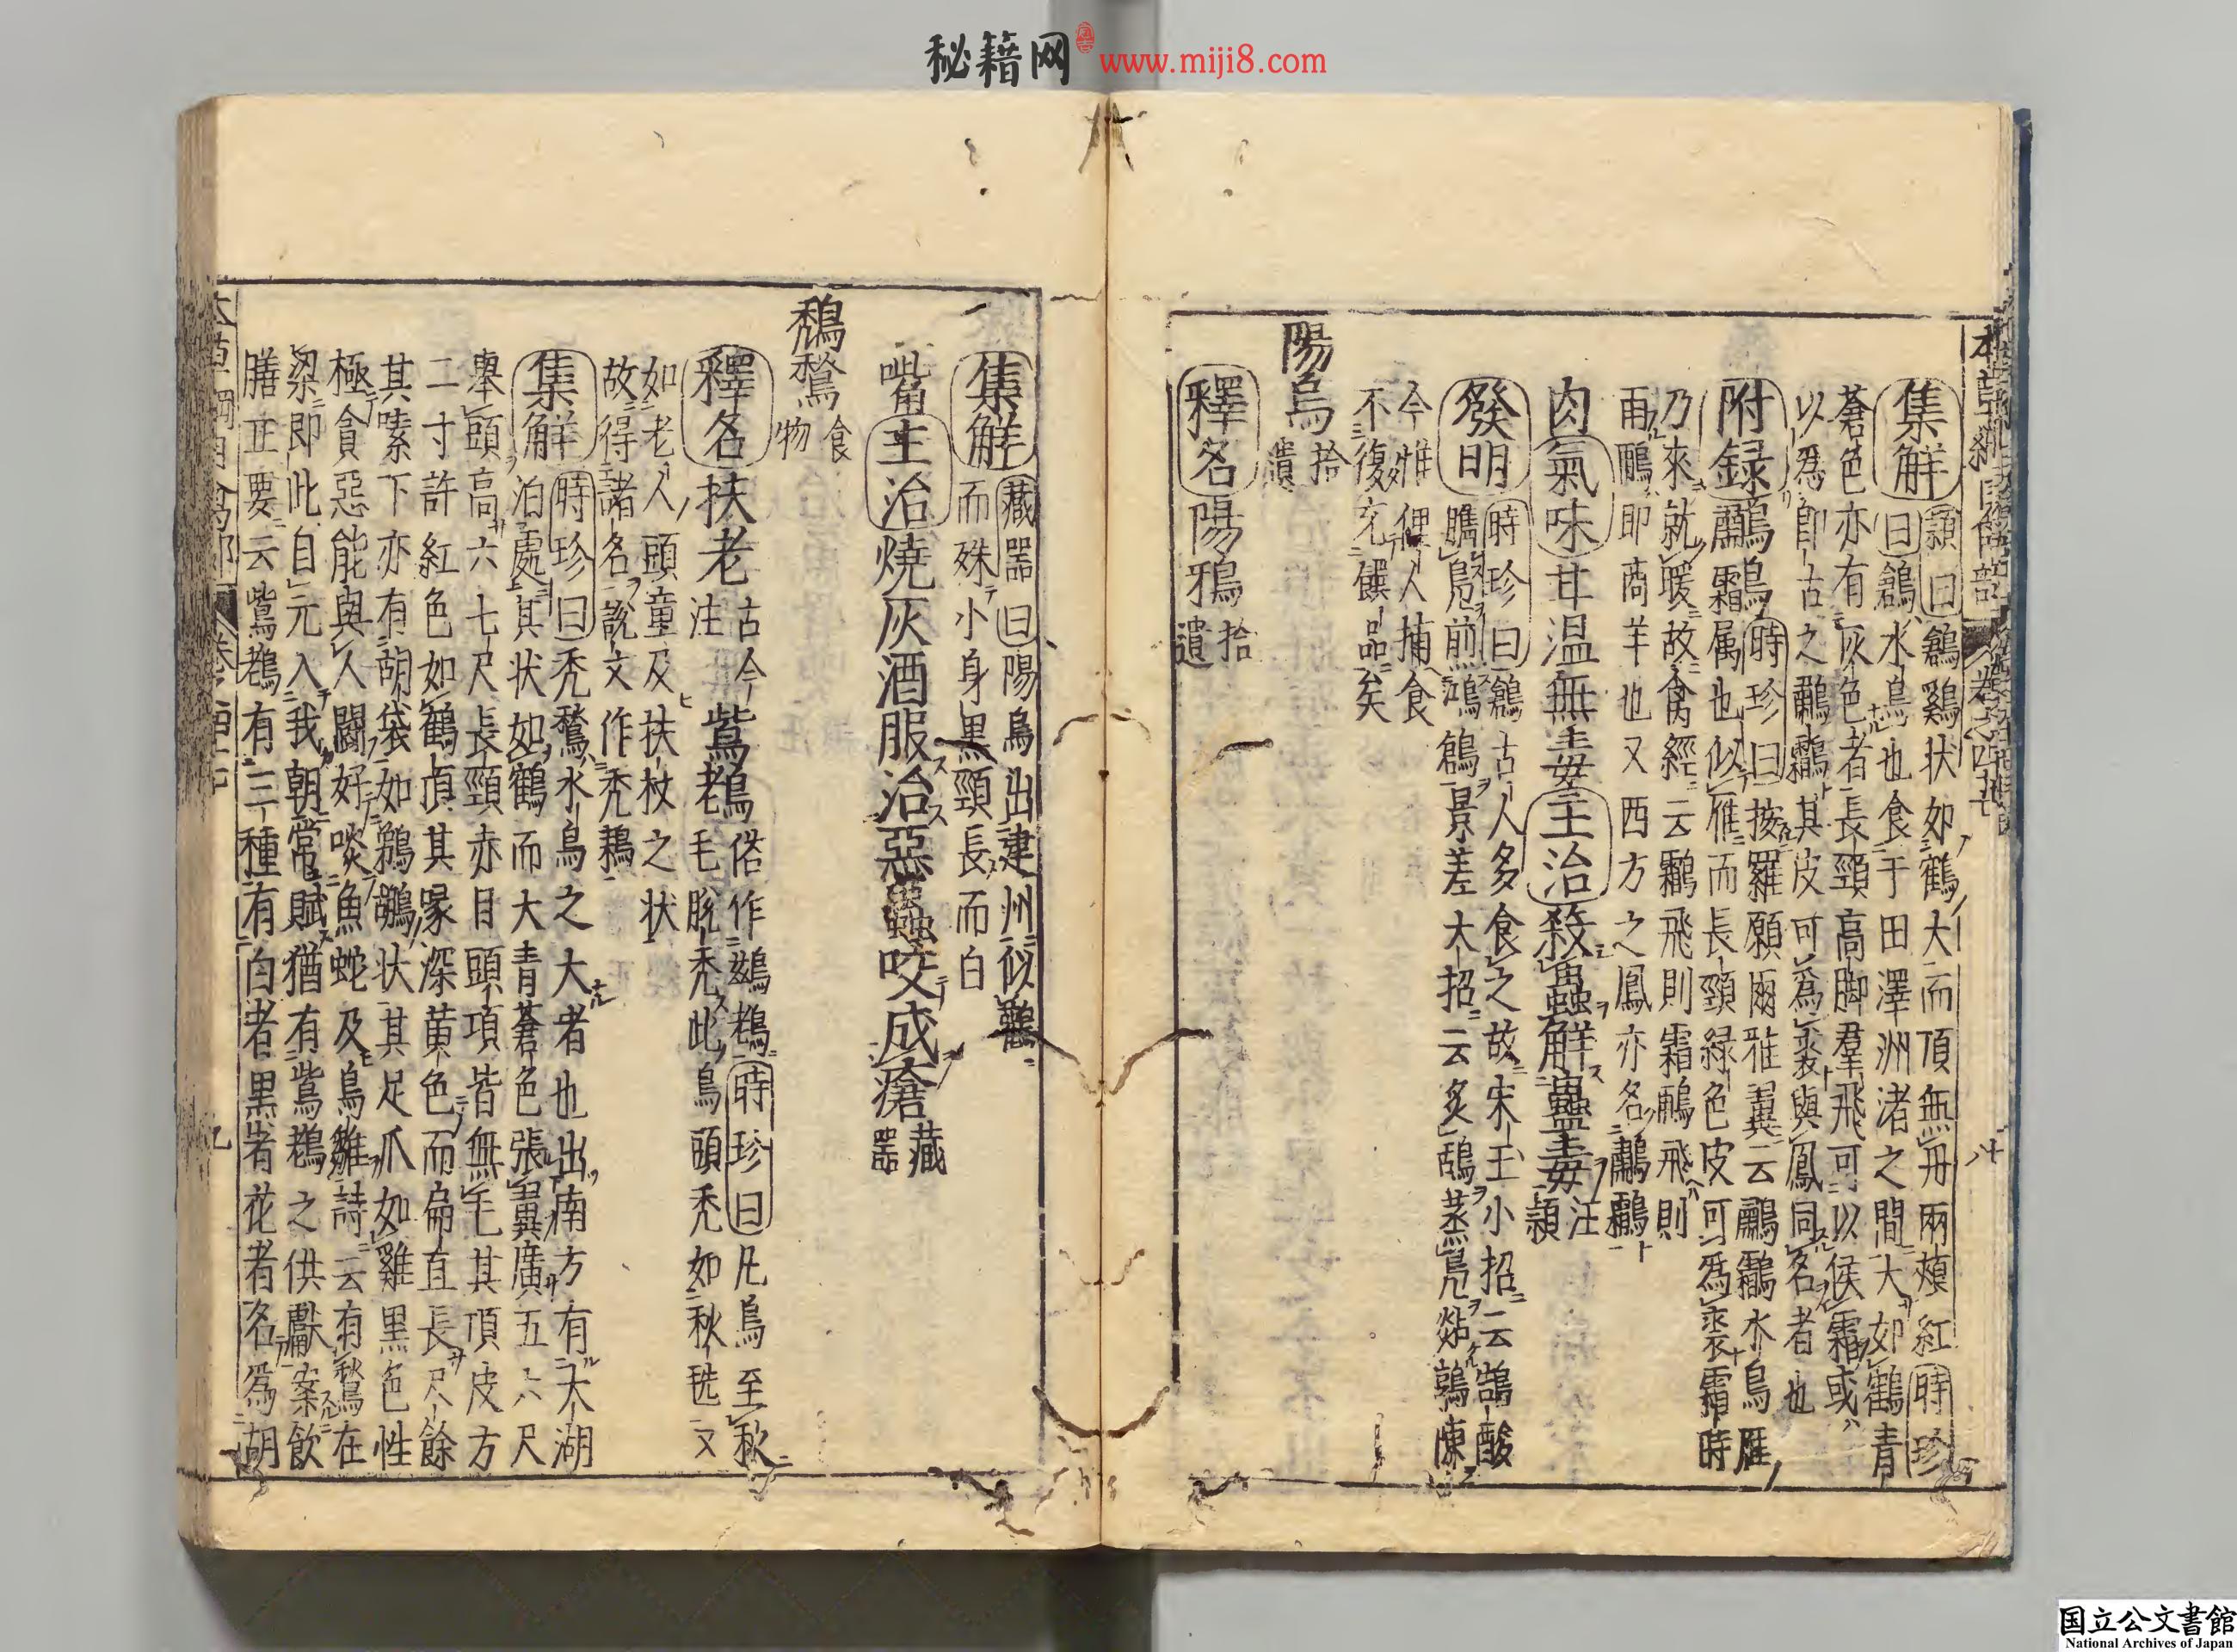 秘籍网 www.miji8.com
集解頴曰鶬鷄状如鶴大而頂無丹兩頰紅時珍
曰鶬水鳥也食于田澤洲渚之間大如鶴青
蒼色亦有灰色者長頸高脚羣飛可以候霜或
以為即古之鷫鸘其皮可為裘與鳳同名者也
附録鷫鸘時珍曰按羅願爾雅翼云鷫鸘水鳥雁
霜属也似雁而長頸緑色皮可為裘霜時
乃來就暖故禽經云鸘飛則霜鸍飛則
雨鸍即商羊也又西方之鳳亦名鷫鸘
肉氣味甘温無毒主治殺蟲解蠱毒汪頴
發明時珍曰鶬古人多食之故宋玉小招云鵠酸
臇鳧煎鴻鶬景差大招云炙鴰蒸鳧煔鶉陳
今惟俚人捕食
不復充饌品矣
陽烏拾遺
釋名陽鴉拾遺
集解藏器曰陽烏出建州似鸛
而殊小身黒頸長而白
嘴主治燒灰酒服治惡蟲咬成瘡藏器
鵚鶖食物
釋名扶老古今注鴜𪃟俗作鷀鶓時珍曰凡鳥至秋
毛脫秃此鳥頭秃如秋毨又
如老人頭童及扶杖之状
故得諸名說文作秃鶖
集解時珍曰秃鶖水鳥之大者也出南方有大湖
泊處其状如鶴而大青蒼色張翼廣五六尺
舉頭高六七尺長頸赤目頭項皆無毛其頂皮方
二寸許紅色如鶴頂其喙深黄色而扁直長尺餘
其嗉下亦有胡袋如鵜鶘状其足爪如雞黒色性
極貪惡能與人闘好啖魚蛇及鳥雛詩云有鶖在
梁即此自元入我朝常賦猶有鴜鶓之供獻案飲
膳正要云鴜鶓有三種有白者黒者花者名為胡
国立公文書館
National Archives of Japan